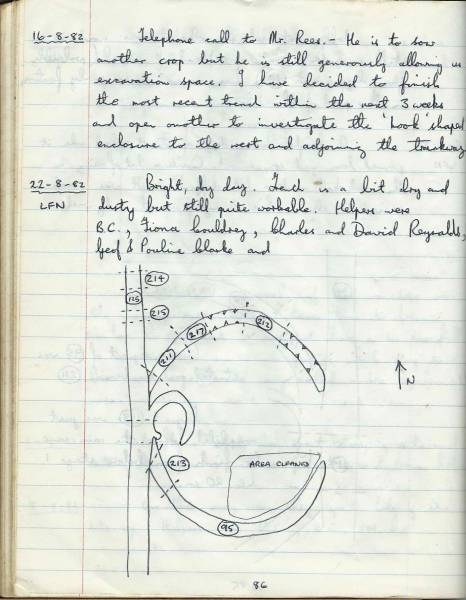 16-8-82 Telephone call to Mr. Rees. - He is to sow
another crop but he is still generously allowing us
excavation space. I have decided to finish
the most recent trench within the next 3 weeks
and open another to investigate the 'hook' shaped
enclosure to the west and adjoining the trackway
22-8-82 Bright, dry day. Trench is a bit dry and
LFN dusty but still quite workable. Helpers were
B.C., Fiona Gouldrey, Charles and David Reynolds,
Geof & Pauline Clarke and
214
125
215
217
212
211
N
213
AREA CLEANED
95
86